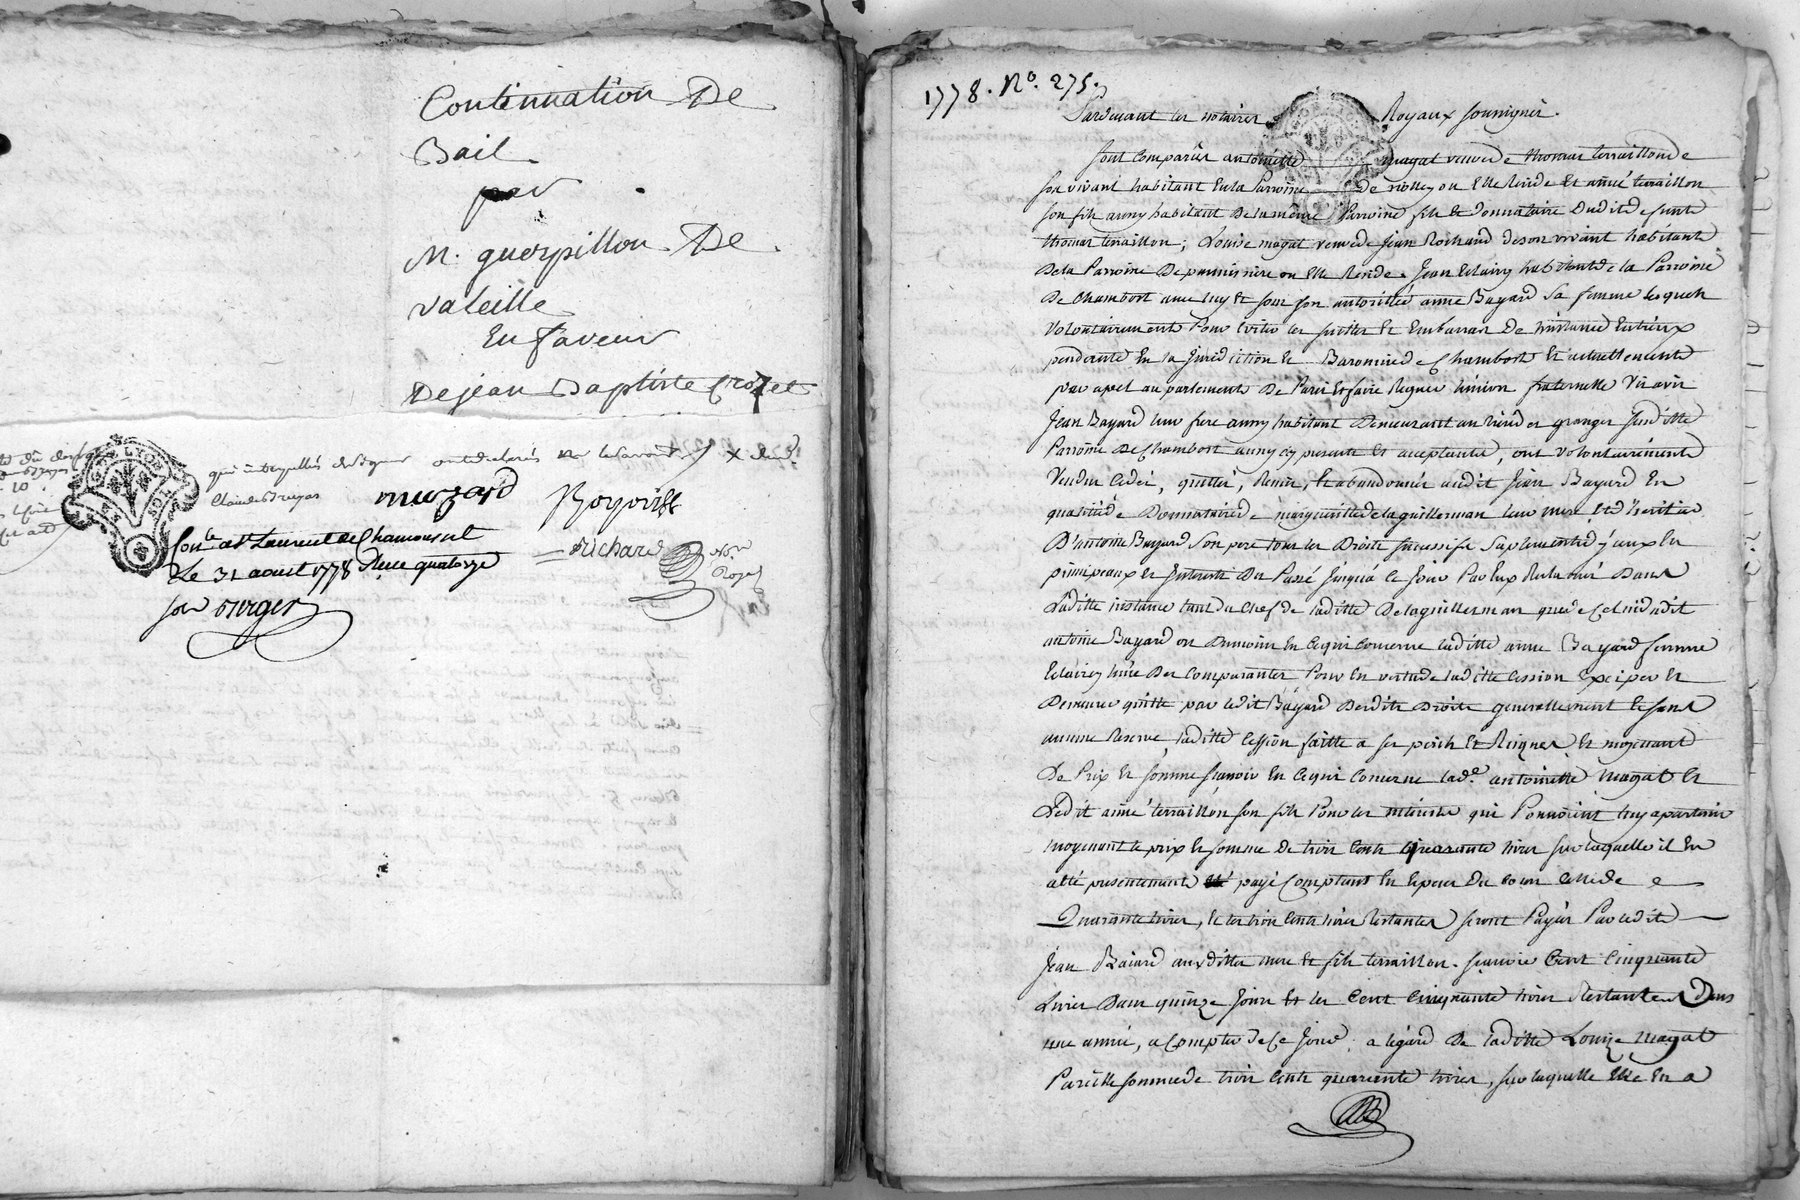 Continuation De
Bail
par
M. guerpillon De
valeille
En faveur
De jean Baptiste Crozet
qui interpellés de signer ont declarés ne le savoir
Claude Bruyas muzard
Conlé a St Laurent de Chamousset
Le 31 aoust 1778 Reçu quatorze
sou
Richard Nore
Royal
1778. No. 275.
Pardevant les notaires Royaux soussignés
sont comparus antoinette magat veuve de thomas terraillon de
son vivant habitant En la Parroisse de nolley ou Elle Reside Et aimé terraillon
son fils aussy habitant De la même Parroisse fils Et Donnataire Dudit defunt
thomas terraillon, Louise magat veuve de jean Rochard de son vivant habitante
De la Parroisse De pannissiere ou Elle Reside. Jean Eclairy habitant de la Parroisse
De Chambost avec luy Et sous son autorité anne Bayard sa femme lesquels
volontairement Pour Eviter les suittes Et Embarras De l'instance Entr'eux
pendente En la Juridiction Et Baronnie de Chambost Et actuellement
par apel au parlement De Paris Et faire Regner l'union fraternelle vis avis
Jean Bayard leur frere aussy habitant Demeurant au lieu des granges susditte
Parroisse De Chambost aussy cy present Et acceptant, ont volontairement
vendu cedé, quitté, Remis, Et abandonné audit Jean Bayard En
qualité de Donnataire de margueritte delaguillerman leur mere Et d'heritier
D'antoine Bayard son pere tous les Droits successifs suplement d'yceux En
principeaux Et Interets Du Passé jusqu'a ce Jour Par Eux Reclamé Dans
Laditte instance tant du chef de laditte Delaguillerman que de celui dudit
antoine Bayard ou Dumoins En ce qui concerne laditte anne Bayard femme
Eclairy l'une Des comparantes Pour En vertu de laditte cession Exciper Et
Demeurer quitte par ledit Bayard Desdits Droits generallement Et sans
aucune Reserve, laditte cession faitte a ses perils Et Risques Et moyenant
De Prix Et somme sçavoir En ce qui concerne lade. antoinette magat Et
Ledit aimé terraillon son fils Pour les interets qui Pouvoient luy apartenir
moyenant le prix Et somme De trois Cents quarante livres sur laquelle il En
a Eté presentement payé Comptant En Especes Du cour Celle de
Quarante livres, Et les trois Cents livres Restantes seront Payés Par ledit
Jean Baiard auxdittes mere Et fils terraillon. sçavoir Cent Cinquante
Livres Dans quinze Jours Et les Cent Cinquante livres Restantes Dans
une année, a Compter de Ce jour, a l'égard De laditte Louise magat
Pareille somme de trois Cents quarante livres, sur laquelle Elle En a